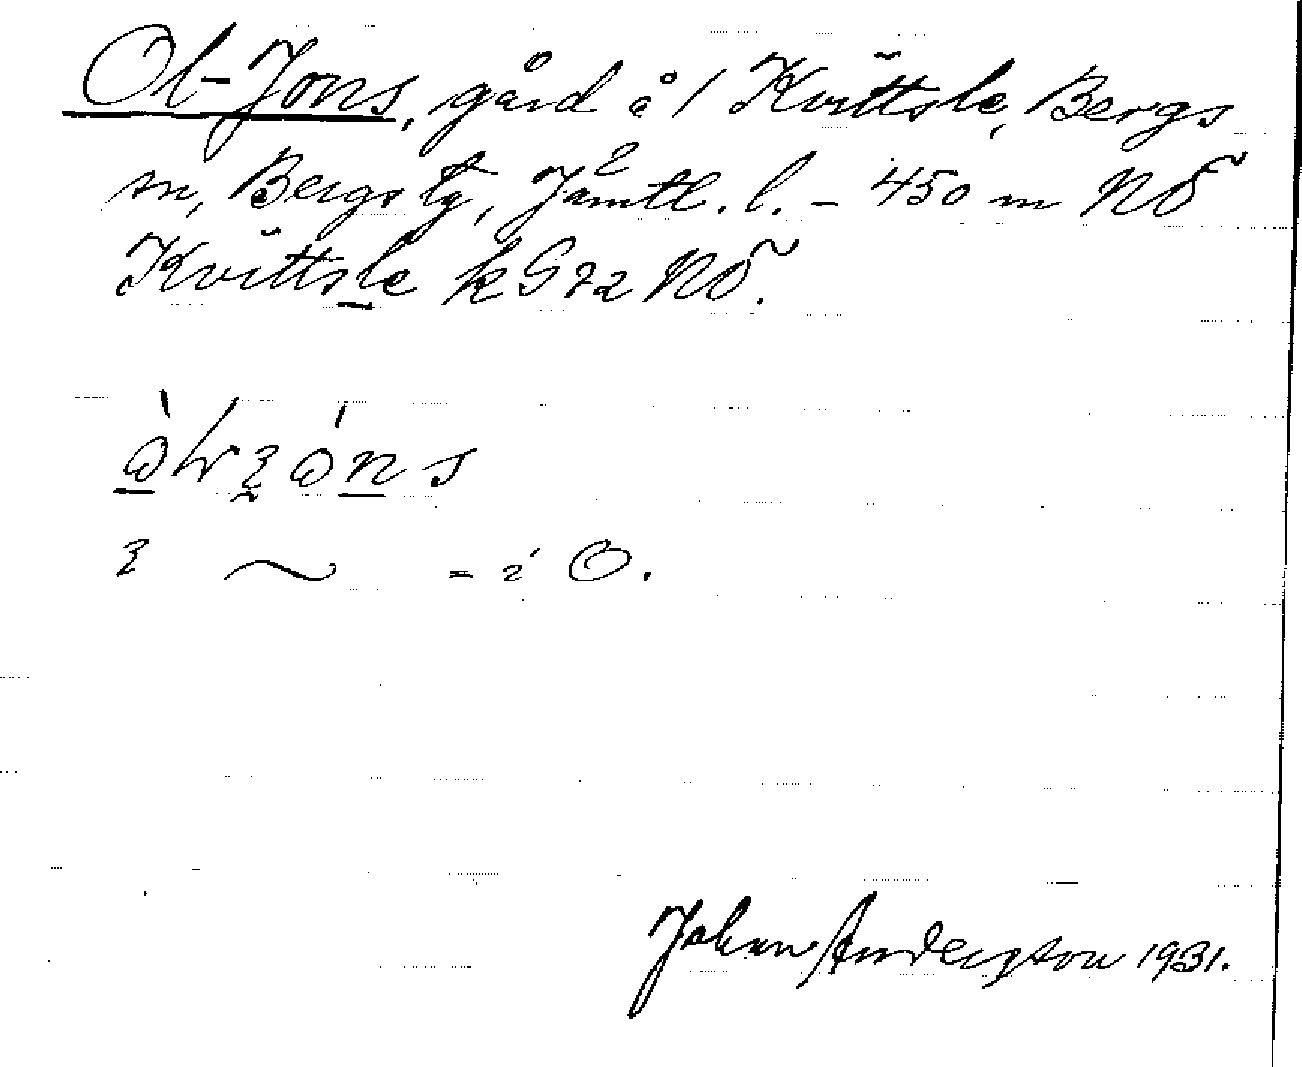 Ol-Jons, gård å / Kvittsle, Bergs
sn, Bergs tg, Jämtl. l. – 450 m NÖ
Kvittsle k G 72 NÖ.
- i O.
Johan Andersson 1931.